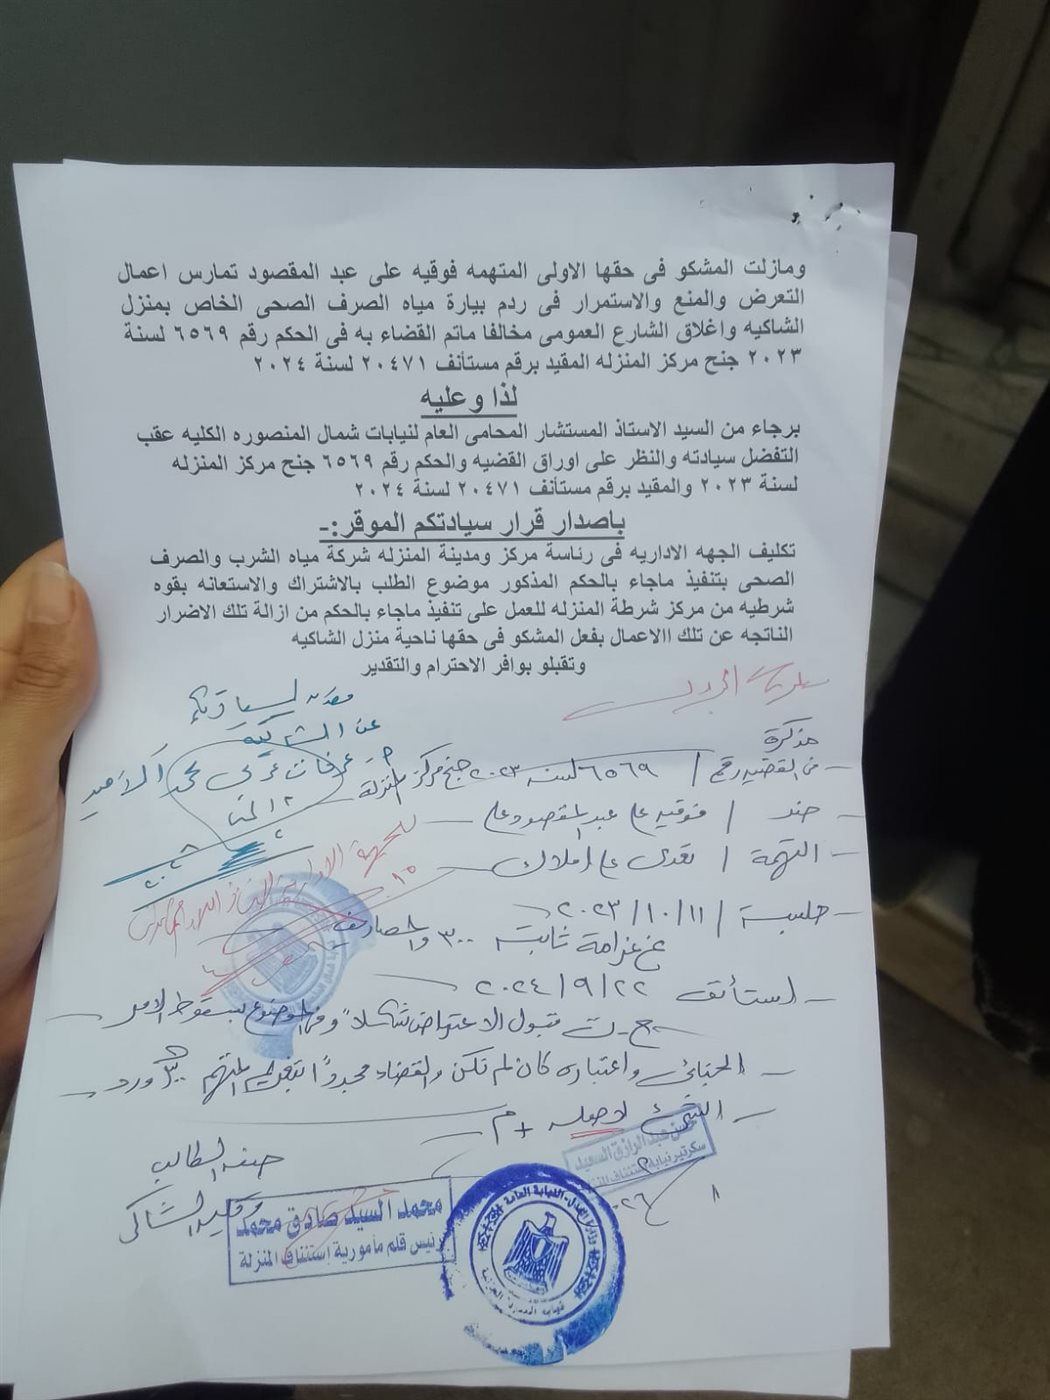 ومازلت المشكو فى حقها الاولى المتهمه فوقيه على عبد المقصود تمارس اعمال
التعرض والمنع والاستمرار فى ردم بيارة مياه الصرف الصحى الخاص بمنزل
الشاكيه واغلاق الشارع العمومى مخالفا ماتم القضاء به فى الحكم رقم ٦٥٦٩ لسنة
٢٠٢٣ جنح مركز المنزله المقيد برقم مستأنف ٢٠٤٧١ لسنة ٢٠٢٤
لذا وعليه
برجاء من السيد الاستاذ المستشار المحامى العام لنيابات شمال المنصوره الكليه عقب
التفضل سيادته والنظر على اوراق القضيه والحكم رقم ٦٥٦٩ جنح مركز المنزله
لسنة ٢٠٢٣ والمقيد برقم مستأنف ٢٠٤٧١ لسنة ٢٠٢٤
باصدار قرار سيادتكم الموقر:-
تكليف الجهه الاداريه فى رئاسة مركز ومدينة المنزله شركة مياه الشرب والصرف
الصحى بتنفيذ ماجاء بالحكم المذكور موضوع الطلب بالاشتراك والاستعانه بقوه
شرطيه من مركز شرطة المنزله للعمل على تنفيذ ماجاء بالحكم من ازالة تلك الاضرار
الناتجه عن تلك االاعمال بفعل المشكو فى حقها ناحية منزل الشاكيه
وتقبلو بوافر الاحترام والتقدير
عن الشاكية
مذكرة
فى القضيه رقم / ٦٥٦٩ لسنه ٢٠٢٣ جنح مركز المنزلة
ضد / فوقيه على عبد المقصود على
التهمة / تعدى على املاك
جلسة / ١١/١٠/٢٠٢٣
غ غرامة ثابته ٣٠٠ والمصاريف
استأنف ٢٢/٩/٢٠٢٤
قبول الاعتراض شكلاً وفى الموضوع بسقوط الامر
الجنائى واعتباره كان لم تكن والقضاء مجدداً بتغريم المتهم ٣٠٠ ورد
الشئ لاصله + م
حسن عبد الرازق السعيد
سكرتير نيابة استئناف المنزلة
محمد السيد صادق محمد
رئيس قلم مأمورية إستئناف المنزلة
وزارة العدل - النيابة العامة